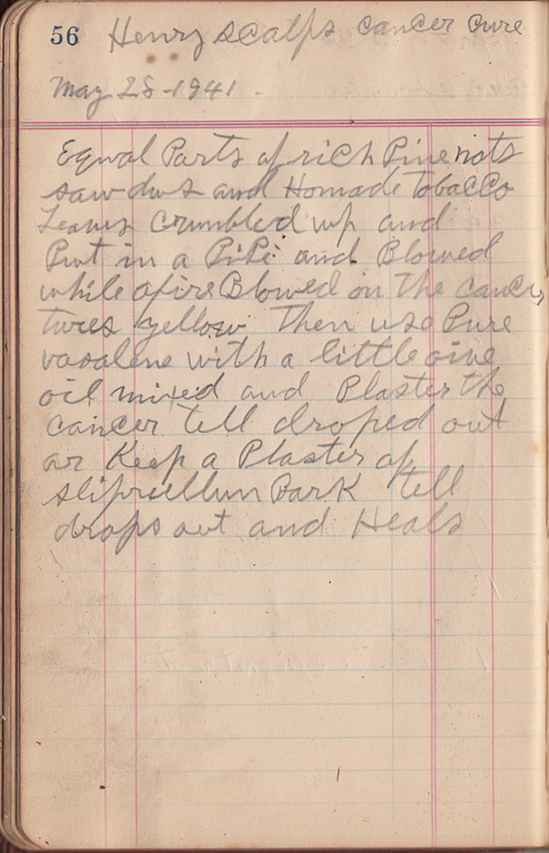 56 Henry scalfs cancer cure
May 28-1941.
Equal Parts of rich Pine nots
saw dus and Homade Tobacco
Leaves crumbled up and
Put in a PiPe and Blowed
while afire Blowed on the cancer,
tures yellow Then use Pure
vasalene with a little oive
oil mixed and Plaster the
cancer tell droped out
or Keep a Plaster of
slipreellum Bark tell
drops out and Heals